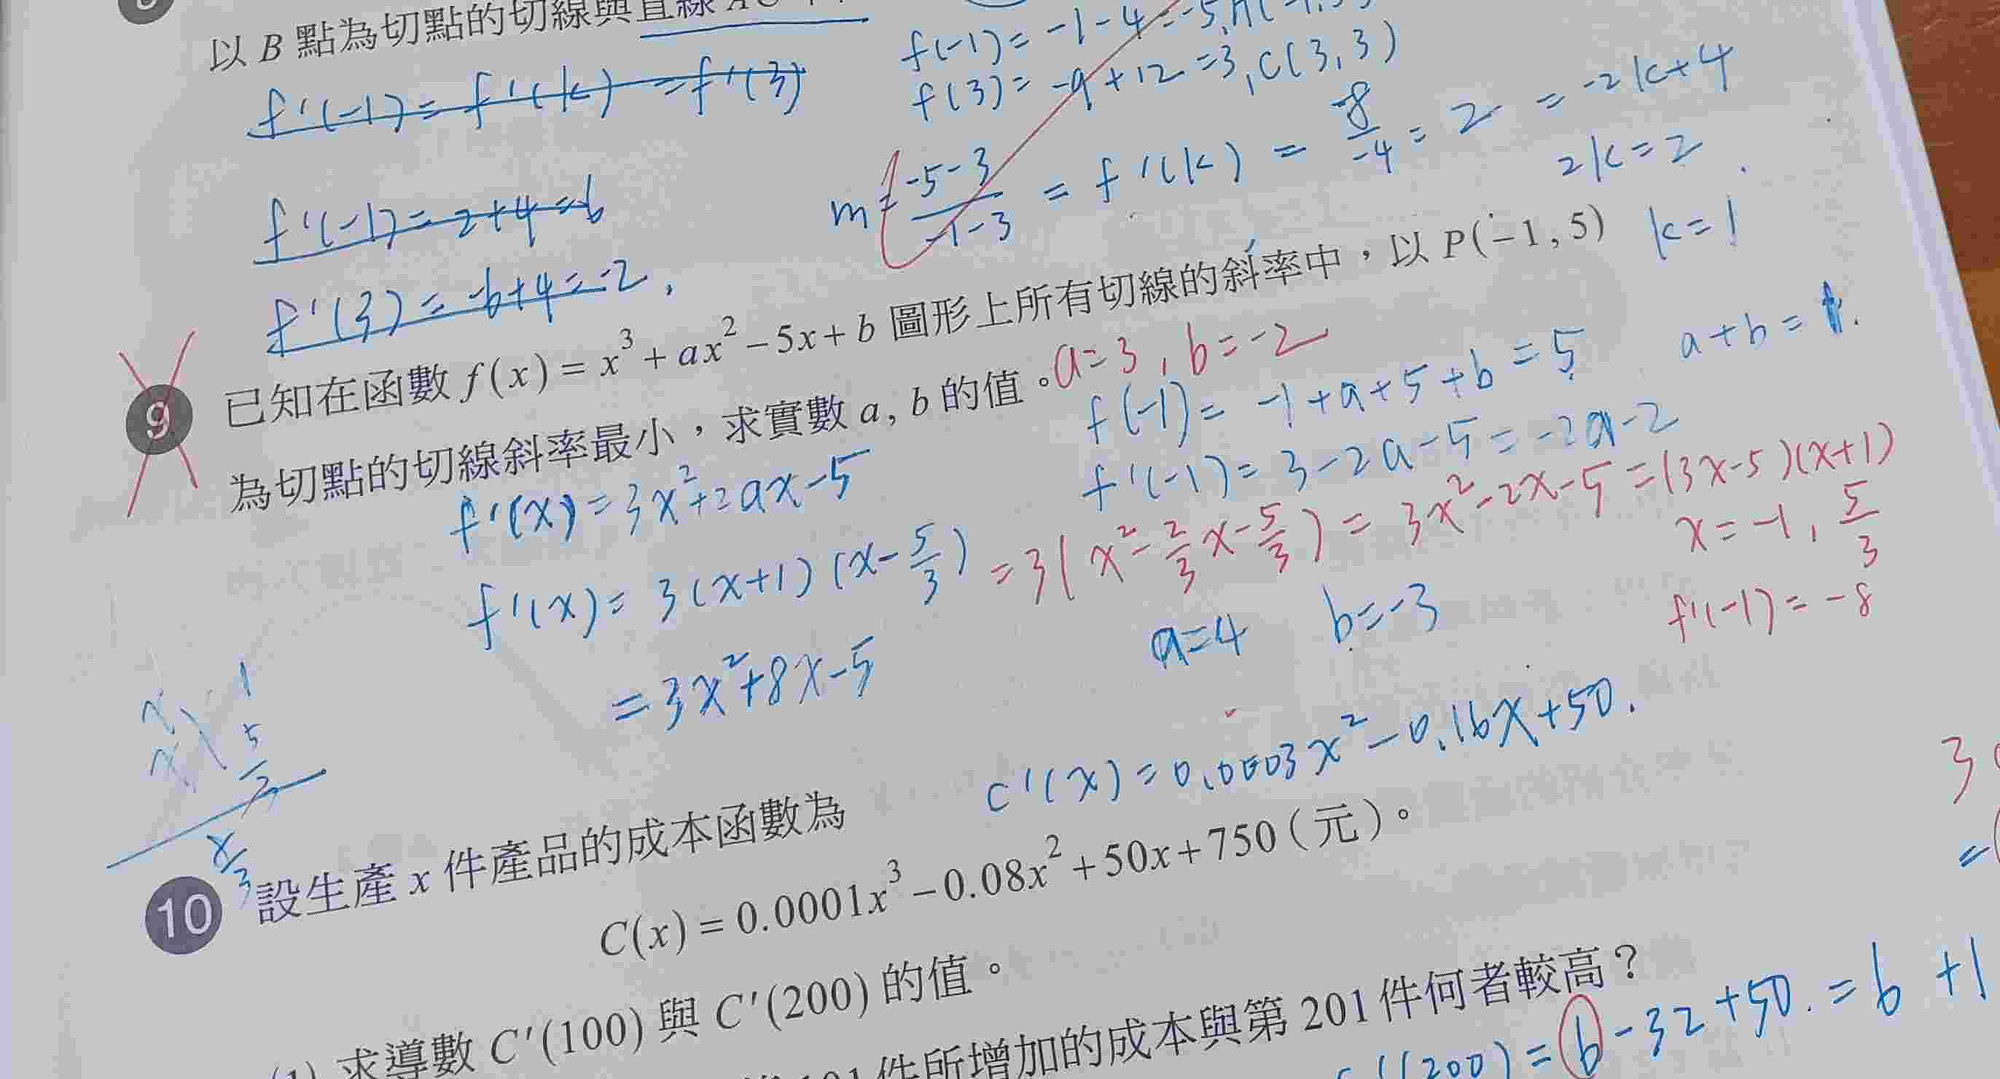 以 B 點為切點的切線與直線
f(-1)=-1-4=-5,
f'(-1)=f'(k)=f'(3)
f(3)=-9+12=3, C(3,3)
m=\frac{-5-3}{-1-3}=f'(k)=\frac{-8}{-4}=2=-2k+4
2k=2
k=1
f'(-1)=2+4=6
f'(3)=-6+4=-2,
9 已知在函數 f(x)=x³+ax²-5x+b 圖形上所有切線的斜率中，以 P(-1,5)
為切點的切線斜率最小，求實數 a, b 的值。a=3, b=-2
f(-1)=-1+a+5+b=5
a+b=1.
f'(-1)=3-2a-5=-2a-2
f'(x)=3x²+2ax-5
f'(x)=3(x+1)(x-\frac{5}{3})=3(x²-\frac{2}{3}x-\frac{5}{3})=3x²-2x-5=(3x-5)(x+1)
x=-1,\frac{5}{3}
f'(-1)=-8
=3x²+8x-5
a=4 b=-3
C'(x)=0.0003x²-0.16x+50.
10 設生產 x 件產品的成本函數為
C(x)=0.0001x³-0.08x²+50x+750（元）。
求導數 C'(100) 與 C'(200) 的值。
件所增加的成本與第 201 件何者較高？
'(200)=6-32+50.=6+1